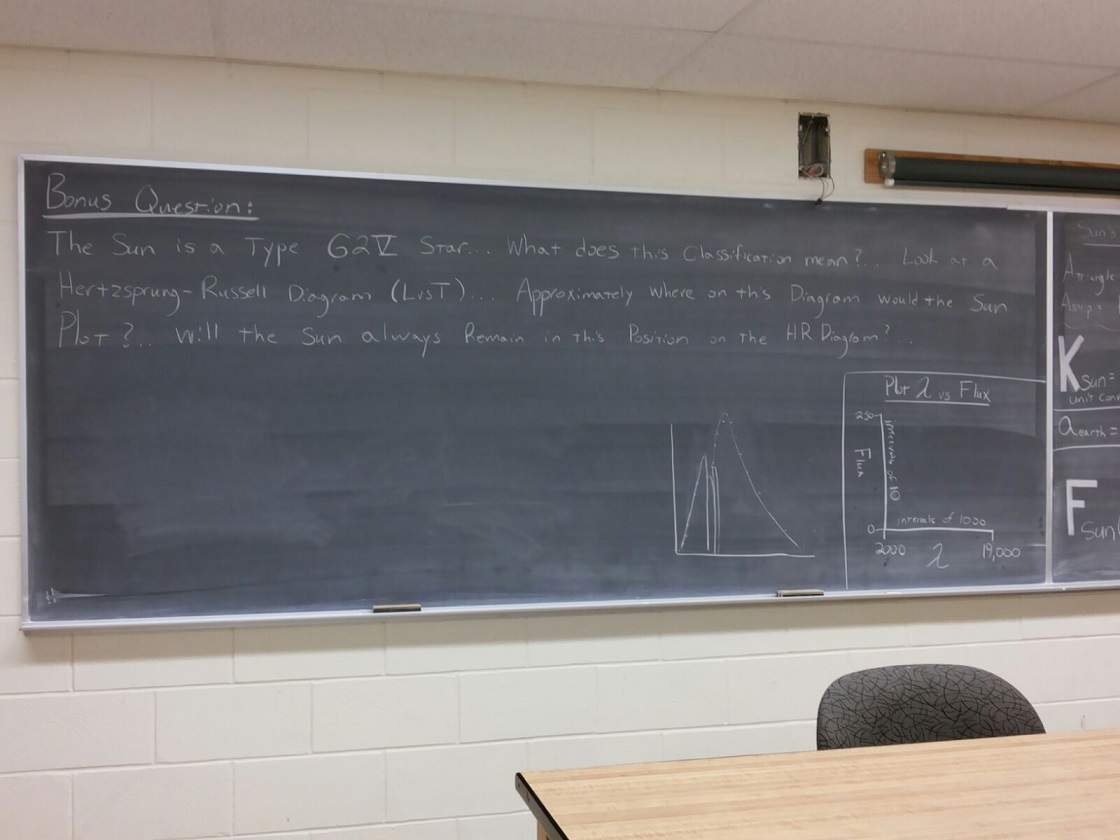 Bonus Question:
The Sun is a Type G2V Star... What does this Classification mean?... Look at a
Hertzsprung-Russell Diagram (LvsT)... Approximately where on this Diagram would the Sun
Plot?... Will the Sun always Remain in this Position on the HR Diagram?...
Plot λ vs Flux
250
Flux
intervals of 10
intervals of 1000
0
2000
λ
19,000
Sun's
K sun=
unit
a earth =
F sun